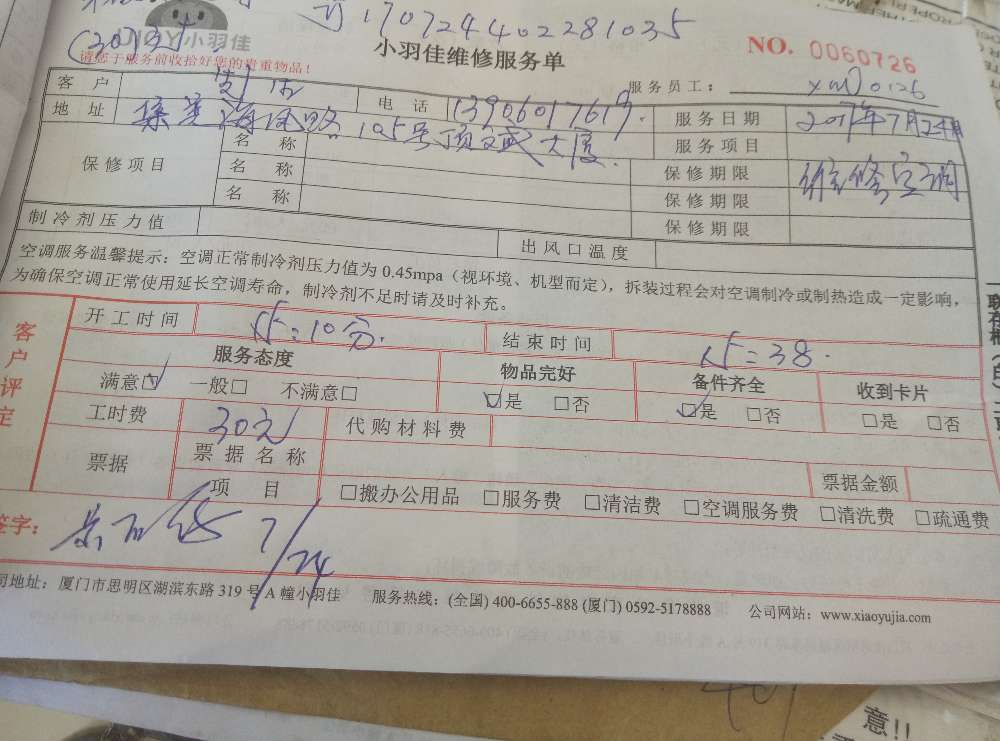 170724402281035
(30元)
JIAY小羽佳
小羽佳维修服务单
NO. 0060726
请您于服务前收拾好您的贵重物品!
服务员工: xm0126
客 户 电 话 13906017619. 服务日期 2017年7月24日
地 址 集美海凤路105号顶盛大厦. 服务项目 维修空调
保修项目 名 称 保修期限
名 称 保修期限
名 称 保修期限
制冷剂压力值 出风口温度
空调服务温馨提示:空调正常制冷剂压力值为 0.45mpa(视环境、机型而定),拆装过程会对空调制冷或制热造成一定影响,
为确保空调正常使用延长空调寿命,制冷剂不足时请及时补充。
客户评定
开工时间 10分. 结束时间 38.
服务态度 物品完好 备件齐全 收到卡片
满意☑ 一般□ 不满意□ ☑是 □否 ☑是 □否 □是 □否
工时费 30元 代购材料费
票据 票据名称 票据金额
项 目 □搬办公用品 □服务费 □清洁费 □空调服务费 □清洗费 □疏通费
签字: 7/24
司地址:厦门市思明区湖滨东路 319 号 A 幢小羽佳 服务热线:(全国) 400-6655-888 (厦门) 0592-5178888 公司网站:www.xiaoyujia.com
意!!